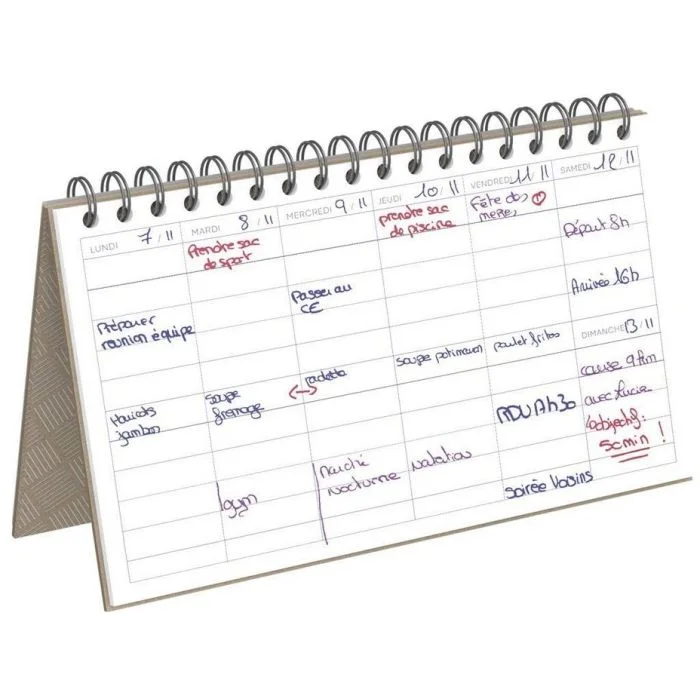 LUNDI 7/11
Préparer
réunion équipe
Haricots
jambon
MARDI 8/11
Prendre sac
de sport
soupe
fromage
gym
MERCREDI 9/11
Passer au
CE
raclette
marché
nocturne
JEUDI 10/11
prendre sac
de piscine
soupe potimarron
natation
VENDREDI 11/11
Fête des
mères
poulet frites
RDV
soirée Voisins
SAMEDI 12/11
Départ 8h
Arrivée 16h
DIMANCHE 13/11
course 9km
avec Lucie
objectif:
50min !